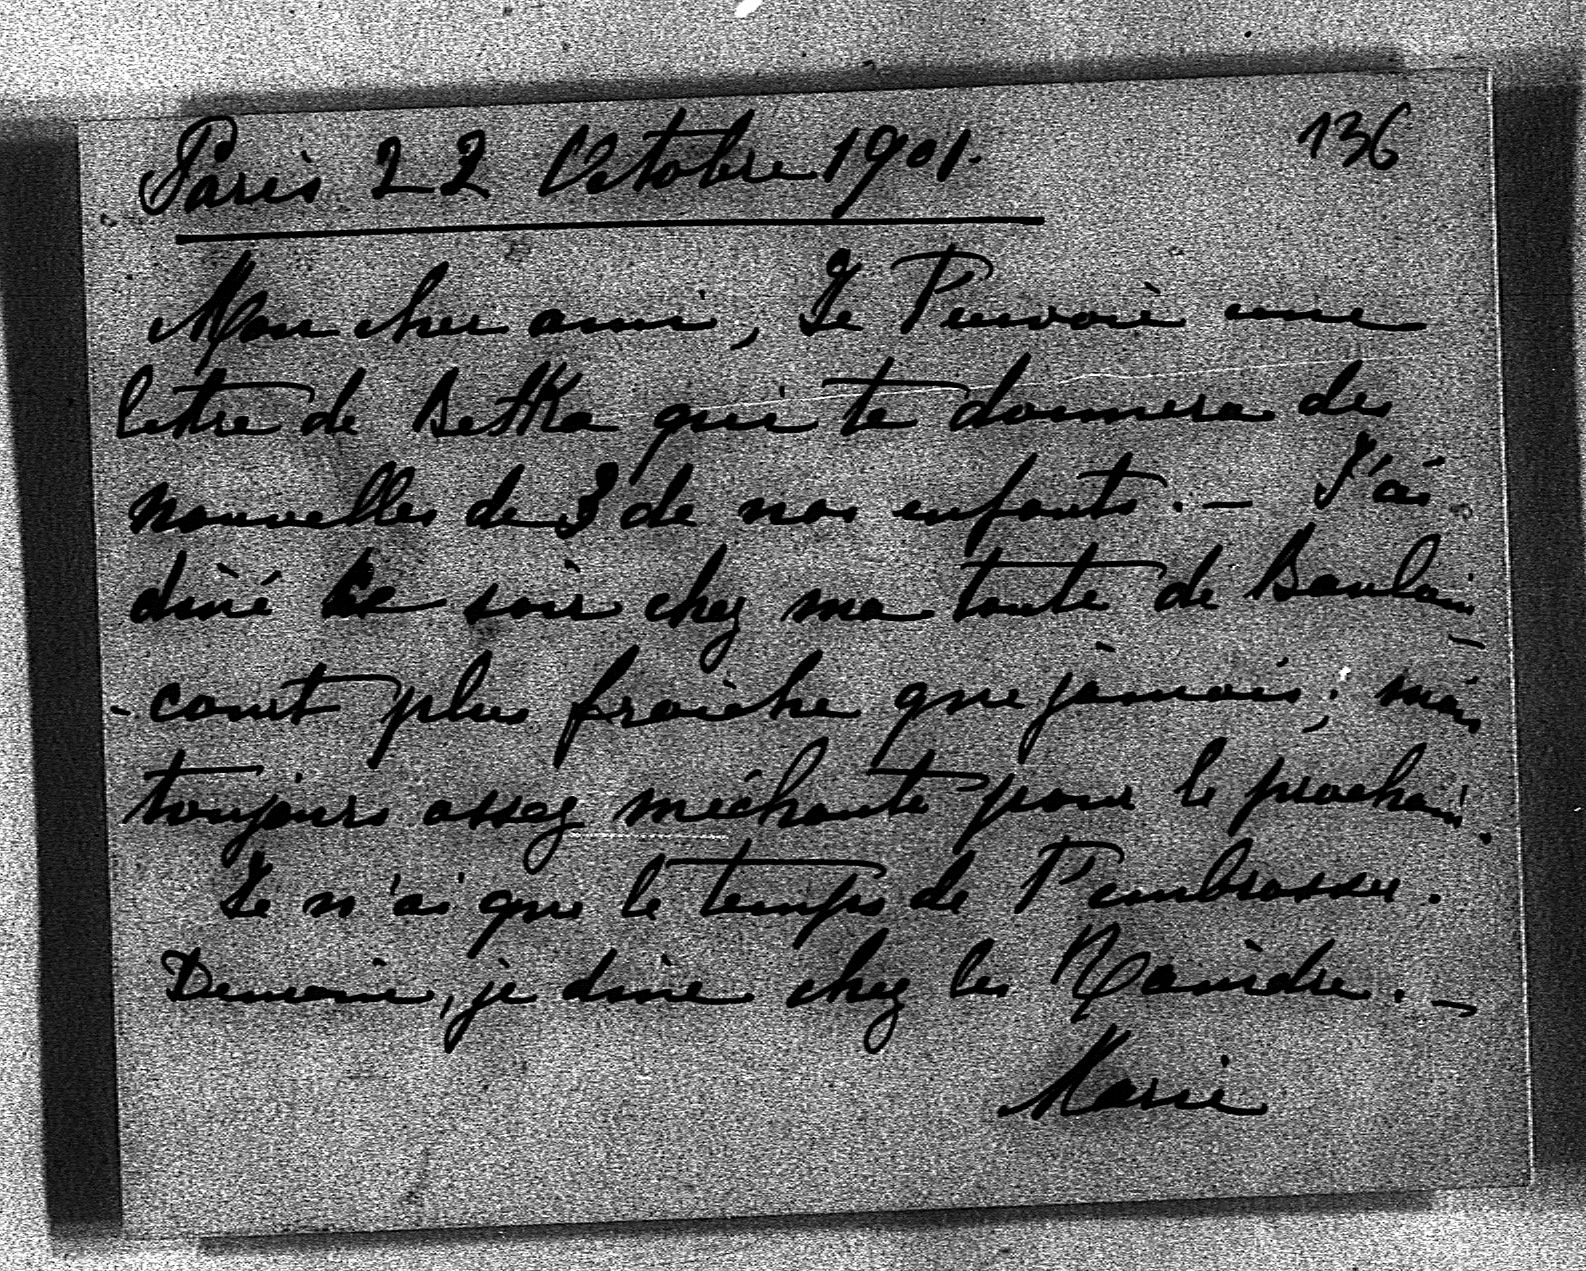 Paris 22 Octobre 1901. 136
Mon cher ami, Je T'envoie une
lettre de Betka qui te donnera des
nouvelles de 3 de nos enfants. — J'ai
diné ce soir chez ma tante de Baulain
- court plus fraiche que jamais; mais
toujours assez méchante pour le prochain.
Je n'ai que le temps de T'embrasser.
Demain, je dine chez les —
Marie